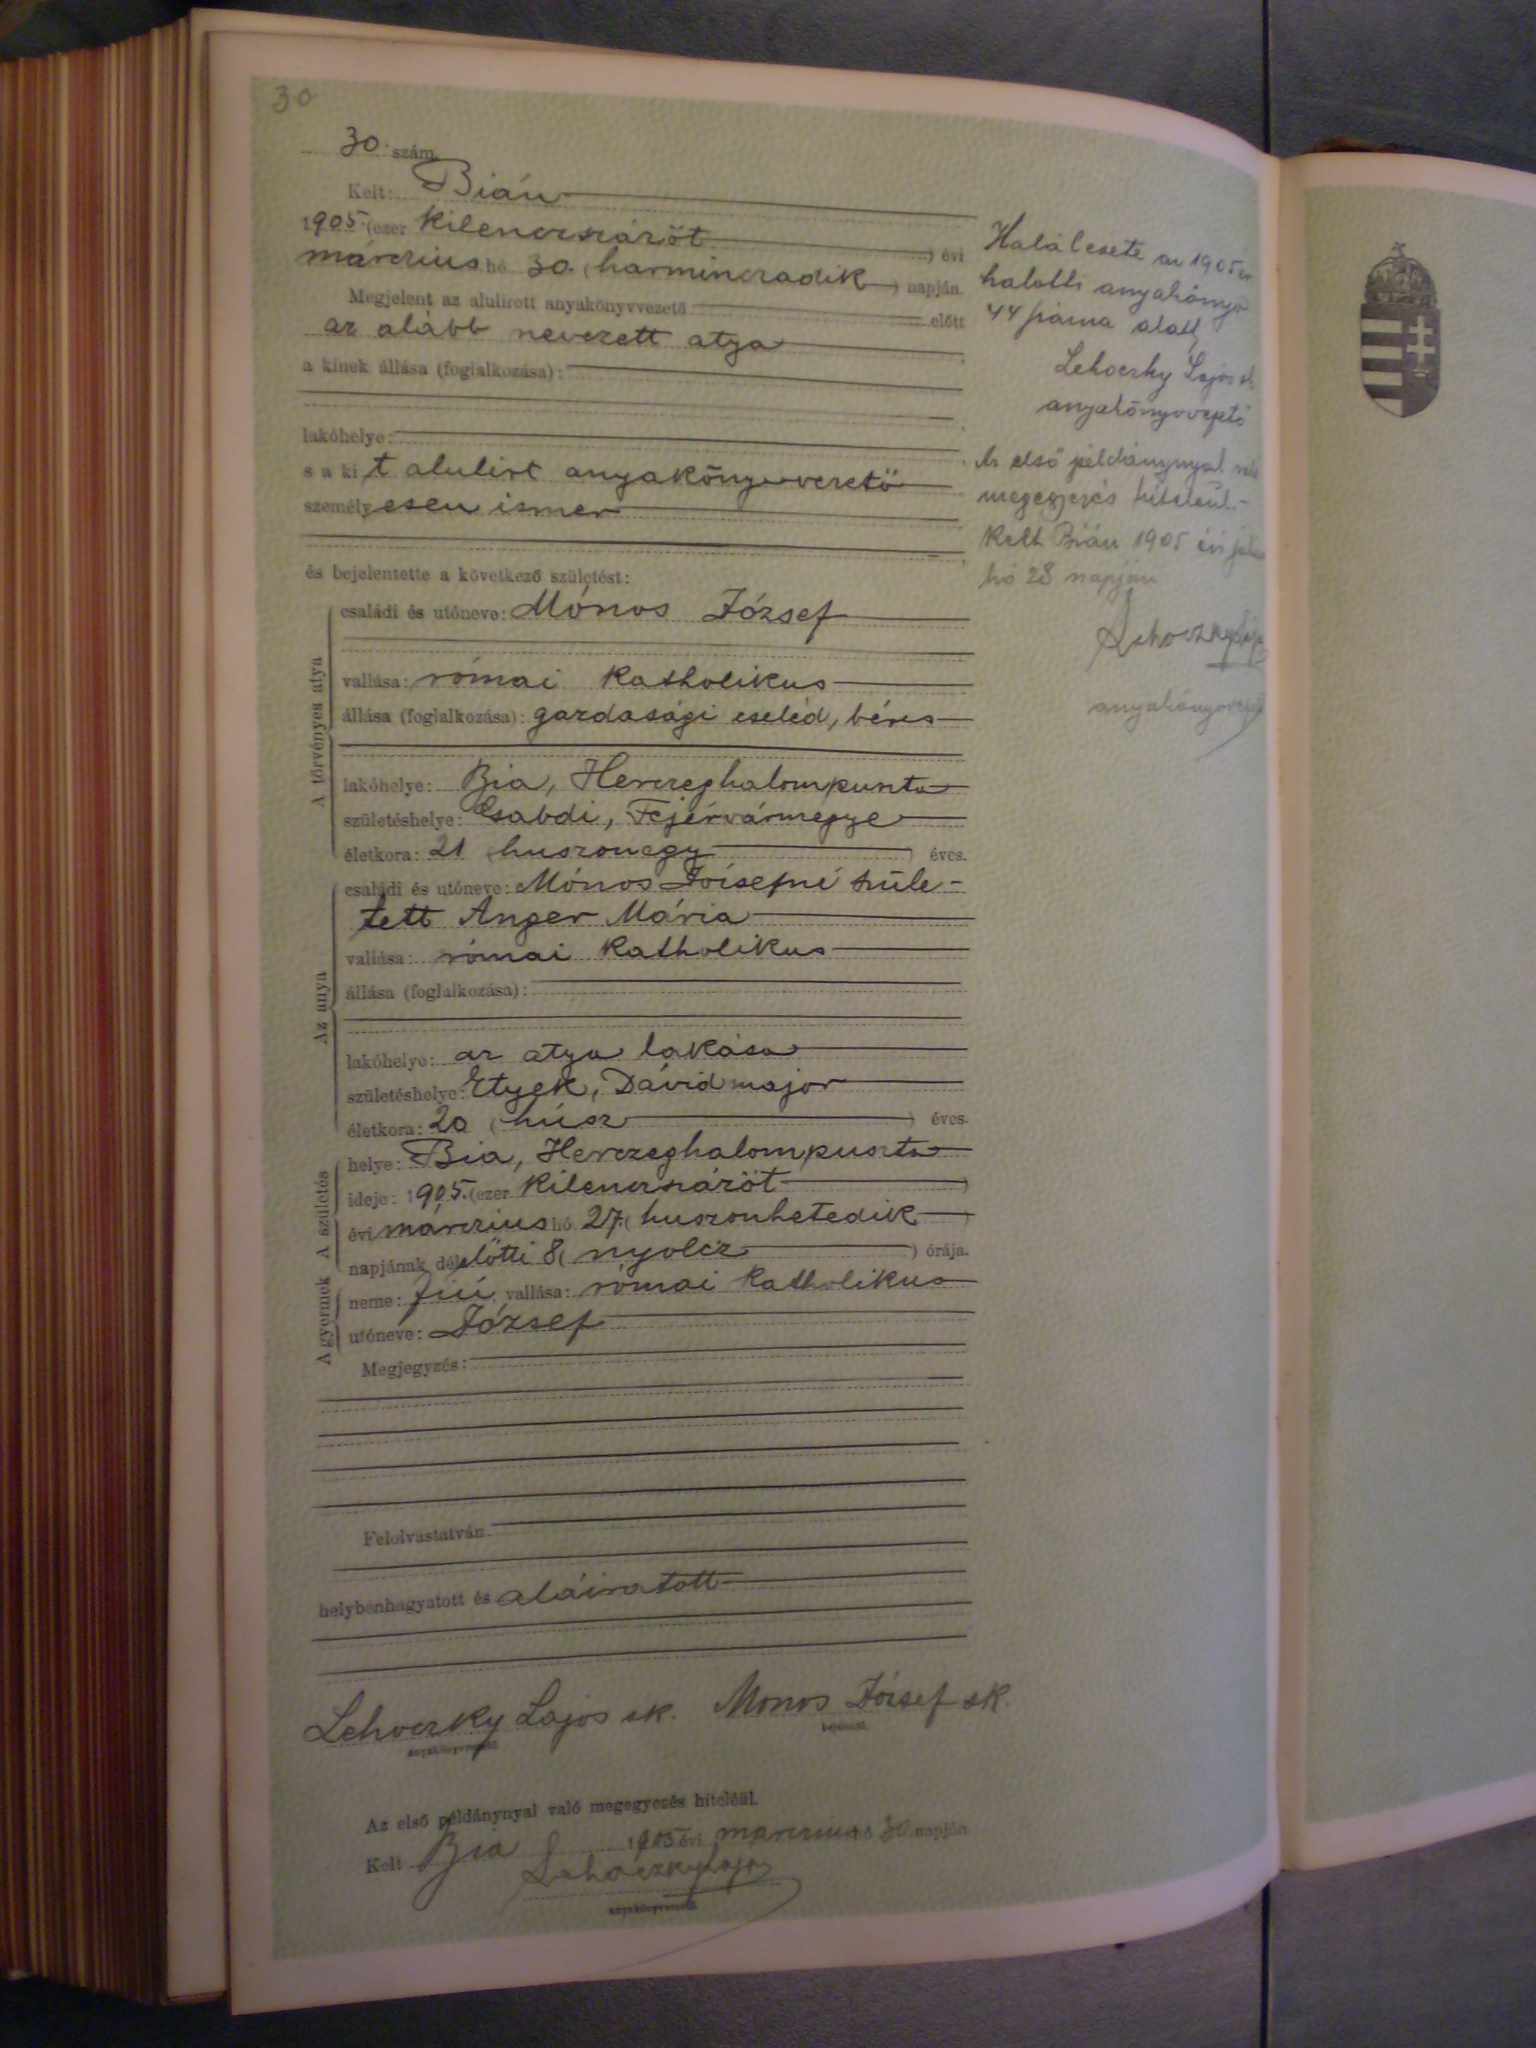 30
30 szám.
Kelt: Bián
1905 (ezer kilenczszázöt) évi
márczius hó 30. (harminczadik) napján.
Megjelent az alulirott anyakönyvvezető előtt
az alább nevezett atya
a kinek állása (foglalkozása):
lakóhelye:
s a kit alulirt anyakönyvvezető
személyesen ismer
és bejelentette a következő születést:
A törvényes atya
családi és utóneve: Mónos József
vallása: római katholikus
állása (foglalkozása): gazdasági cseléd, béres
lakóhelye: Bia, Herczeghalompuszta
születéshelye: Csabdi, Fejérvármegye
életkora: 21 (huszonegy) éves.
Az anya
családi és utóneve: Mónos Józsefné szüle-
tett Anger Mária
vallása: római katholikus
állása (foglalkozása):
lakóhelye: az atya lakása
születéshelye: Etyek, Dávidmajor
életkora: 20 (húsz) éves.
A születés
helye: Bia, Herczeghalompuszta
ideje: 1905. (ezer kilenczszázöt)
évi márczius hó 27. (huszonhetedik)
napjának délelőtti 8 (nyolcz) órája.
A gyermek
neme: fiú, vallása: római katholikus
utóneve: József
Megjegyzés:
Felolvastatván
helybenhagyatott és aláiratott
Lehoczky Lajos sk. Monos József sk.
anyakönyvvezető. bejelentő.
Az első példánynyal való megegyezés hiteléül.
Kelt Bia 1905 évi márczius hó 30 napján
Lehoczky Lajos
anyakönyvvezető.
Halálesete az 1905 évi
halotti anyakönyv
44 száma alatt
Lehoczky Lajos sk
anyakönyvvezető
Az első példánynyal való
megegyezés hiteléül.-
Kelt Bián 1905 évi
hó 28 napján
Lehoczky Lajos
anyakönyvvezető